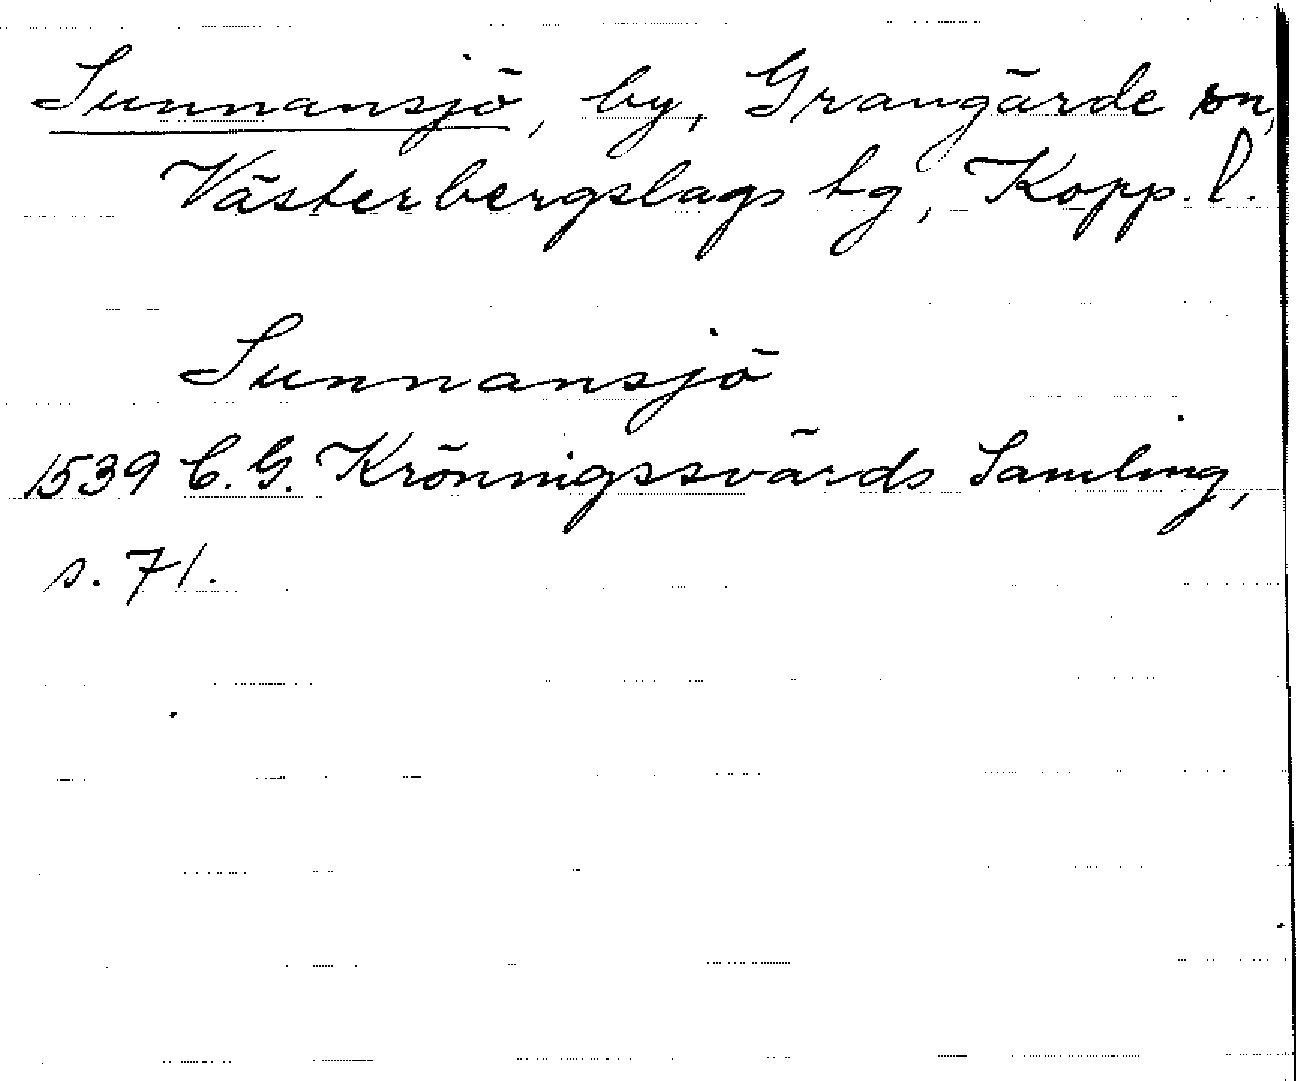 Sunnansjö, by, Grangärde sn,
Västerbergslags tg, Kopp. l.
Sunnansjö
1539 C. G. Krönnigssvärds Samling,
s. 71.